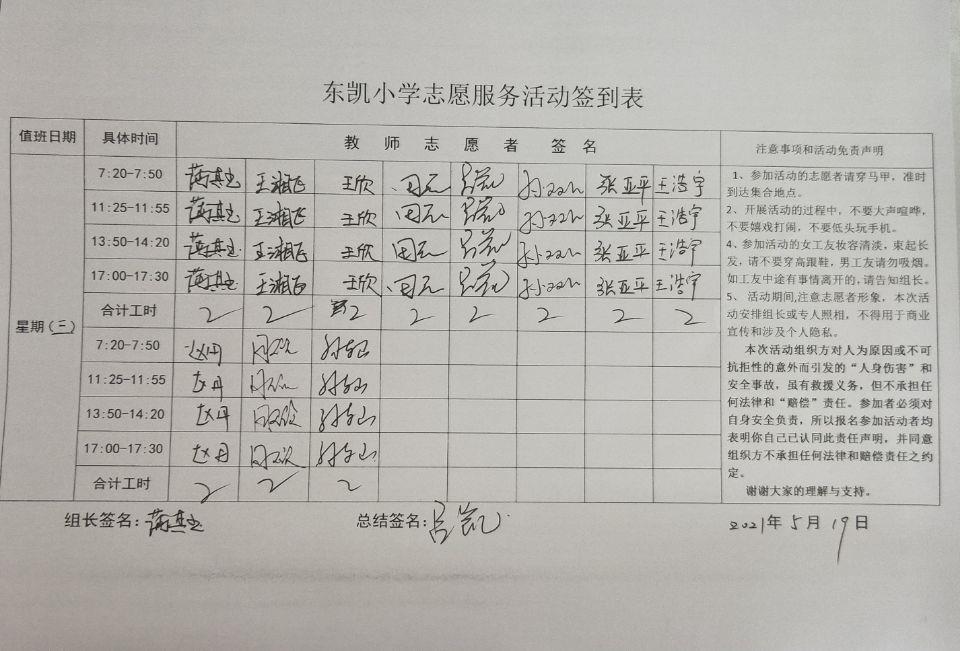 东凯小学志愿服务活动签到表
值班日期 具体时间 教师志愿者签名 注意事项和活动免责声明
7:20-7:50 王湘飞 王欣 田元 张亚平 王浩宇
11:25-11:55 王湘飞 王欣 田元 张亚平 王浩宇
13:50-14:20 王湘飞 王欣 田元 张亚平 王浩宇
17:00-17:30 王湘飞 王欣 田元 张亚平 王浩宇
合计工时 2 2 2 2 2 2 2 2
星期(三)
7:20-7:50 赵丹
11:25-11:55 赵丹
13:50-14:20 赵丹
17:00-17:30 赵丹
合计工时 2 2 2
1、参加活动的志愿者请穿马甲，准时
到达集合地点。
2、开展活动的过程中，不要大声喧哗，
不要嬉戏打闹，不要低头玩手机。
4、参加活动的女工友妆容清淡，束起长
发，请不要穿高跟鞋，男工友请勿吸烟。
如工友中途有事情离开的,请告知组长。
5、 活动期间,注意志愿者形象，本次活
动安排组长或专人照相，不得用于商业
宣传和涉及个人隐私。
本次活动组织方对人为原因或不可
抗拒性的意外而引发的“人身伤害”和
安全事故，虽有救援义务，但不承担任
何法律和“赔偿”责任。参加者必须对
自身安全负责，所以报名参加活动者均
表明你自己已认同此责任声明，并同意
组织方不承担任何法律和赔偿责任之约
定。
谢谢大家的理解与支持。
组长签名: 总结签名: 2021年5月19日